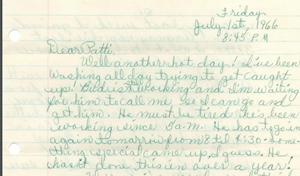 Friday
July 1st, 1966
8:45 P.M
Dear Patti,
Well another hot day! I've been
washing all day trying to get caught
up! Bud is still working and I'm waiting
for him to call me so I can go and
get him. He must be tired he's been
working since 5 a.m. He has to go in
again tomorrow from 8 til 4:30 - some
thing special came up I guess. He
hasn't done this in over a year!